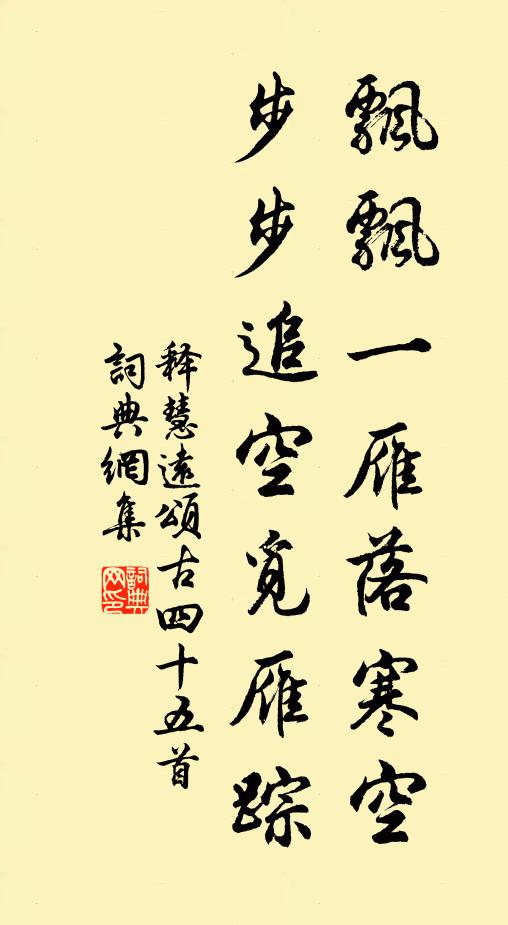 飄飄一雁落寒空
步步追空覓雁踪
釋慧遠頌古四十五首
詞典網集
詞典網印